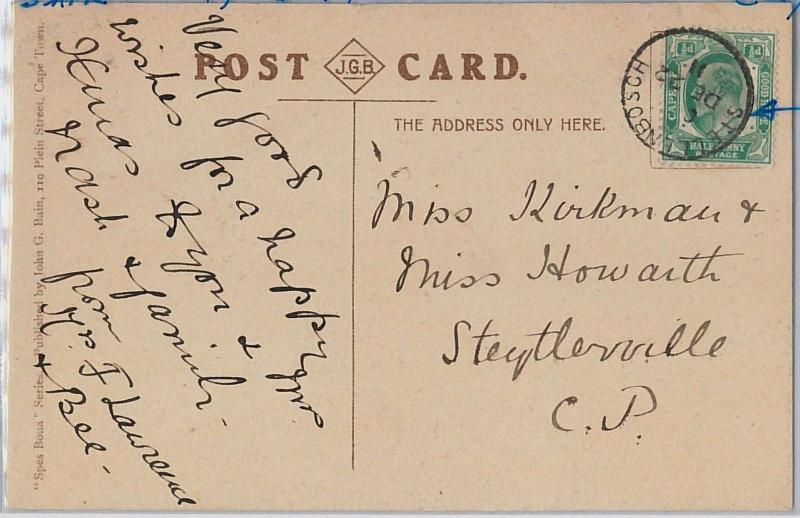 POST J.G.B. CARD.
THE ADDRESS ONLY HERE.
Very good
wishes for a happy
Xmas & you &
Nash & family -
from
Mrs. F Lawrence
& Bee -
Miss Kirkman &
Miss Howarth
Steytlerville
C.P.
"Spes Bona" Series. Published by John G. Bain, 119 Plein Street, Cape Town.
½d ½d
CAPE GOOD
HALFPENNY
POSTAGE
STELLENBOSCH
DE
11